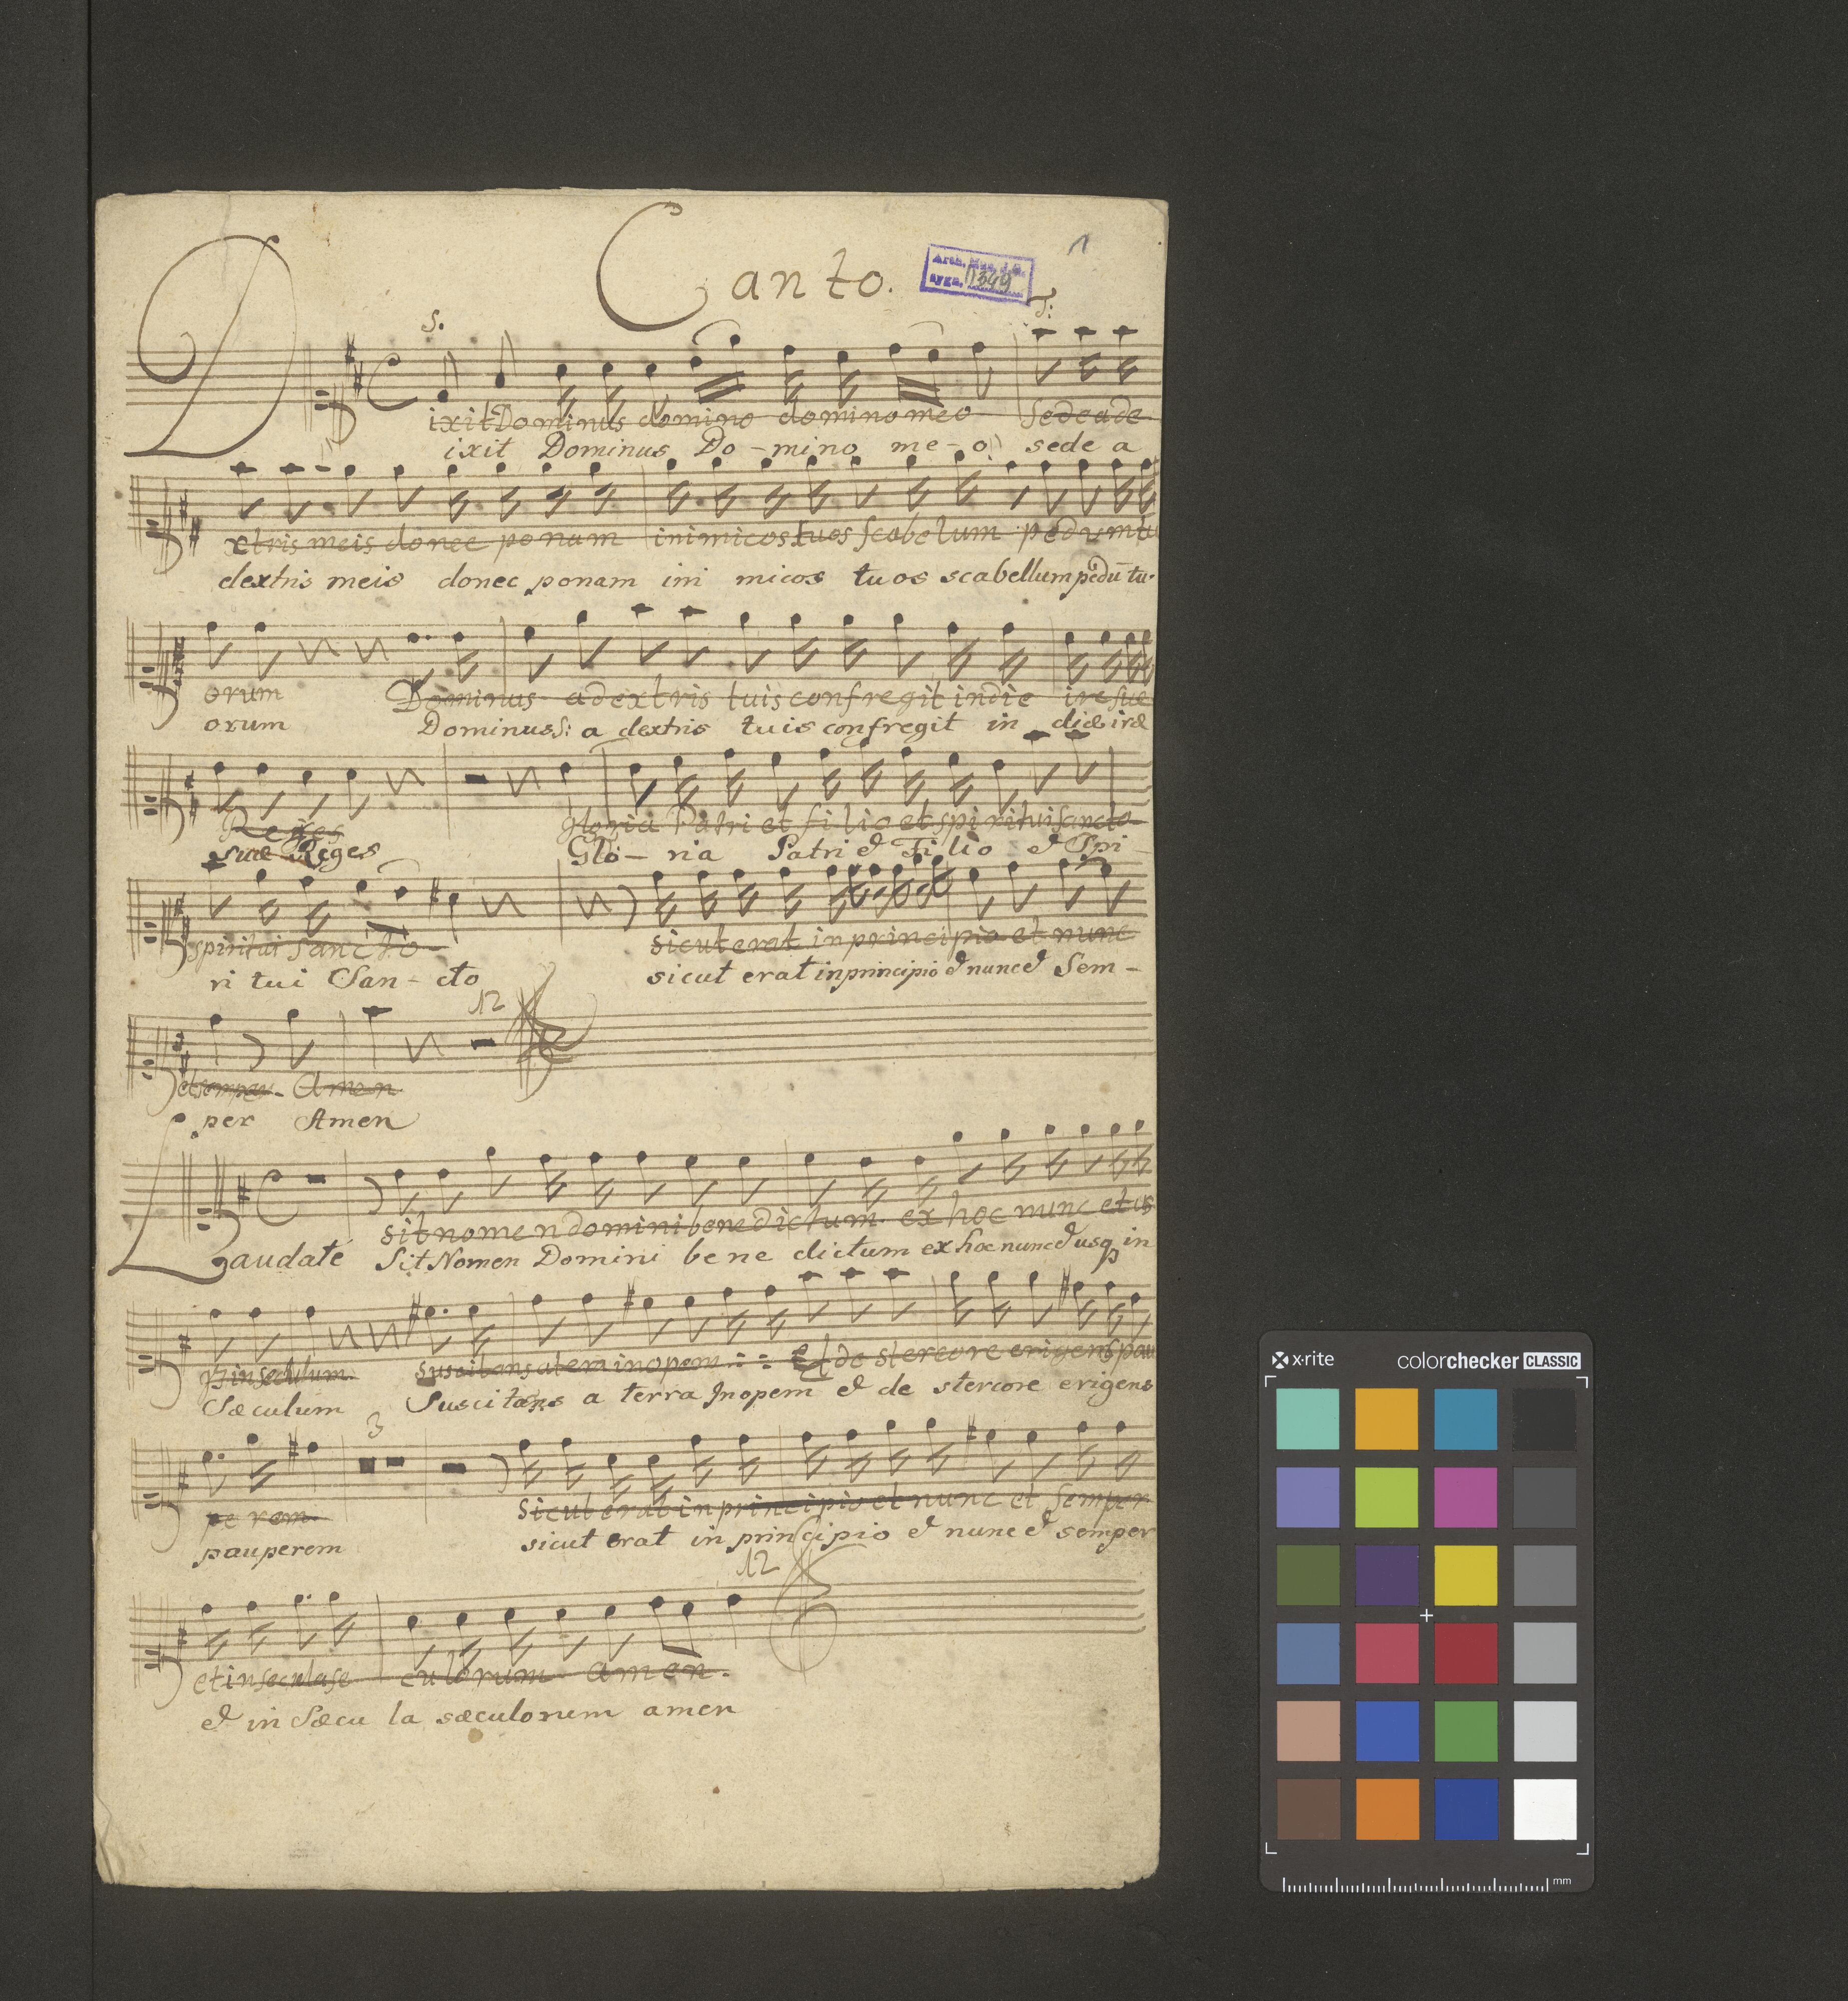 Canto.
1
Arch. Mus. J.G.
sygn. 1349
S. T:
Dixit Dominus domino domino meo sede a de
ixit Dominus Do - mino me - o sede a
xtris meis donec ponam inimicos tuos scabelum pedum tu
dextris meis donec ponam ini micos tuos scabellum pedū tu-
orum Dominus a dextris tuis confregit in die ire sue
orum Dominus S: a dextris tuis confregit in diæ iræ
Reges gloria Patri et filio et spiritui sancto
suæ Reges Glo - ria Patri et Filio et Spi -
spiritui sancto sicut erat in principio et nunc
ri tui San - cto sicut erat in principio et nunc et Sem -
12
et semper - Amen
per Amen
sit nomen domini benedictum ex hoc nunc et us
Laudate Sit Nomen Domini bene dictum ex hoc nunc et usq in
q in seculum suscitans a tera inopem et de stercore erigens pau
Sæculum Suscitans a terra Inopem et de stercore erigens
3
pe rem sicut erat in principio et nunc et semper
pauperem sicut erat in principio et nunc et semper
12
et in secula se culorum amen.
et in Sæcu la sæculorum amen
x·rite colorchecker CLASSIC
mm